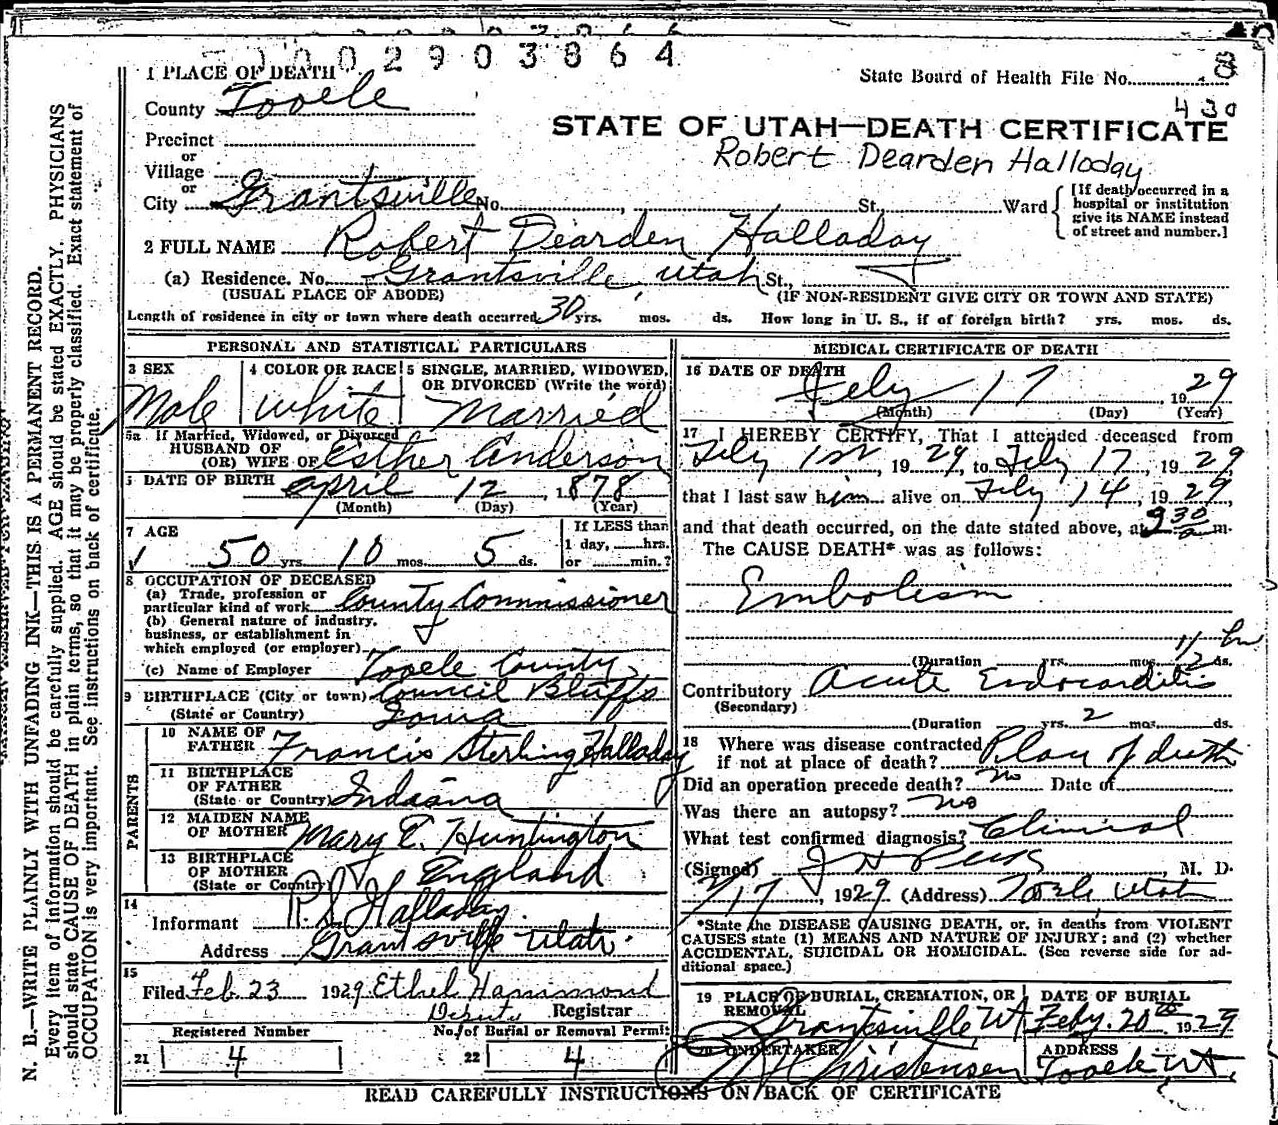 0002903864
1 PLACE OF DEATH
State Board of Health File No. 8
County Tooele
430
STATE OF UTAH—DEATH CERTIFICATE
Precinct
Robert Dearden Halladay
or
Village
or
City Grantsville No. , St., Ward
[If death occurred in a hospital or institution give its NAME instead of street and number.]
2 FULL NAME Robert Dearden Halladay
(a) Residence. No. Grantsville, Utah St.,
(USUAL PLACE OF ABODE) (IF NON-RESIDENT GIVE CITY OR TOWN AND STATE)
Length of residence in city or town where death occurred 30 yrs. mos. ds. How long in U. S., if of foreign birth? yrs. mos. ds.
PERSONAL AND STATISTICAL PARTICULARS
3 SEX
Male
4 COLOR OR RACE
White
5 SINGLE, MARRIED, WIDOWED, OR DIVORCED (Write the word)
Married
5a If Married, Widowed, or Divorced
HUSBAND OF
(OR) WIFE OF Esther Anderson
DATE OF BIRTH April 12, 1878
(Month) (Day) (Year)
7 AGE
50 yrs. 10 mos. 5 ds.
If LESS than
1 day, hrs.
or min.?
8 OCCUPATION OF DECEASED
(a) Trade, profession or
particular kind of work County Commissioner
(b) General nature of industry,
business, or establishment in
which employed (or employer)
(c) Name of Employer Tooele County
9 BIRTHPLACE (City or town) Council Bluffs
(State or Country) Iowa
PARENTS
10 NAME OF
FATHER Francis Sterling Halladay
11 BIRTHPLACE
OF FATHER
(State or Country) Indiana
12 MAIDEN NAME
OF MOTHER Mary E. Huntington
13 BIRTHPLACE
OF MOTHER
(State or Country) England
14
Informant Halladay
Address Grantsville Utah.
15
Filed Feb. 23 1929 Ethel Hammond
Deputy Registrar
Registered Number
21 4
No. of Burial or Removal Permit
22 4
MEDICAL CERTIFICATE OF DEATH
16 DATE OF DEATH
Feby 17 1929
(Month) (Day) (Year)
17 I HEREBY CERTIFY, That I attended deceased from
Feby 1st, 1929, to Feby 17, 1929
that I last saw him alive on Feby 14, 1929,
and that death occurred, on the date stated above, at 9 30 a m.
The CAUSE DEATH* was as follows:
Embolism
1/2 hr
(Duration yrs. mos. ds.
Contributory Acute Endocarditis
(Secondary)
(Duration yrs. 2 mos. ds.
18 Where was disease contracted
if not at place of death? Place of death
Did an operation precede death? No Date of
Was there an autopsy? No
What test confirmed diagnosis? Clinical
(Signed) J H Peck M. D.
2/17, 1929 (Address) Tooele Utah
*State the DISEASE CAUSING DEATH, or, in deaths from VIOLENT
CAUSES state (1) MEANS AND NATURE OF INJURY; and (2) whether
ACCIDENTAL, SUICIDAL OR HOMICIDAL. (See reverse side for ad-
ditional space.)
19 PLACE OF BURIAL, CREMATION, OR
REMOVAL
Grantsville, Ut
DATE OF BURIAL
Feby. 20th 1929
20 UNDERTAKER
Christensen
ADDRESS
Tooele Ut.
READ CAREFULLY INSTRUCTIONS ON BACK OF CERTIFICATE
N. B.—WRITE PLAINLY WITH UNFADING INK—THIS IS A PERMANENT RECORD.
Every item of information should be carefully supplied. AGE should be stated EXACTLY. PHYSICIANS
should state CAUSE OF DEATH in plain terms, so that it may be properly classified. Exact statement of
OCCUPATION is very important. See instructions on back of certificate.